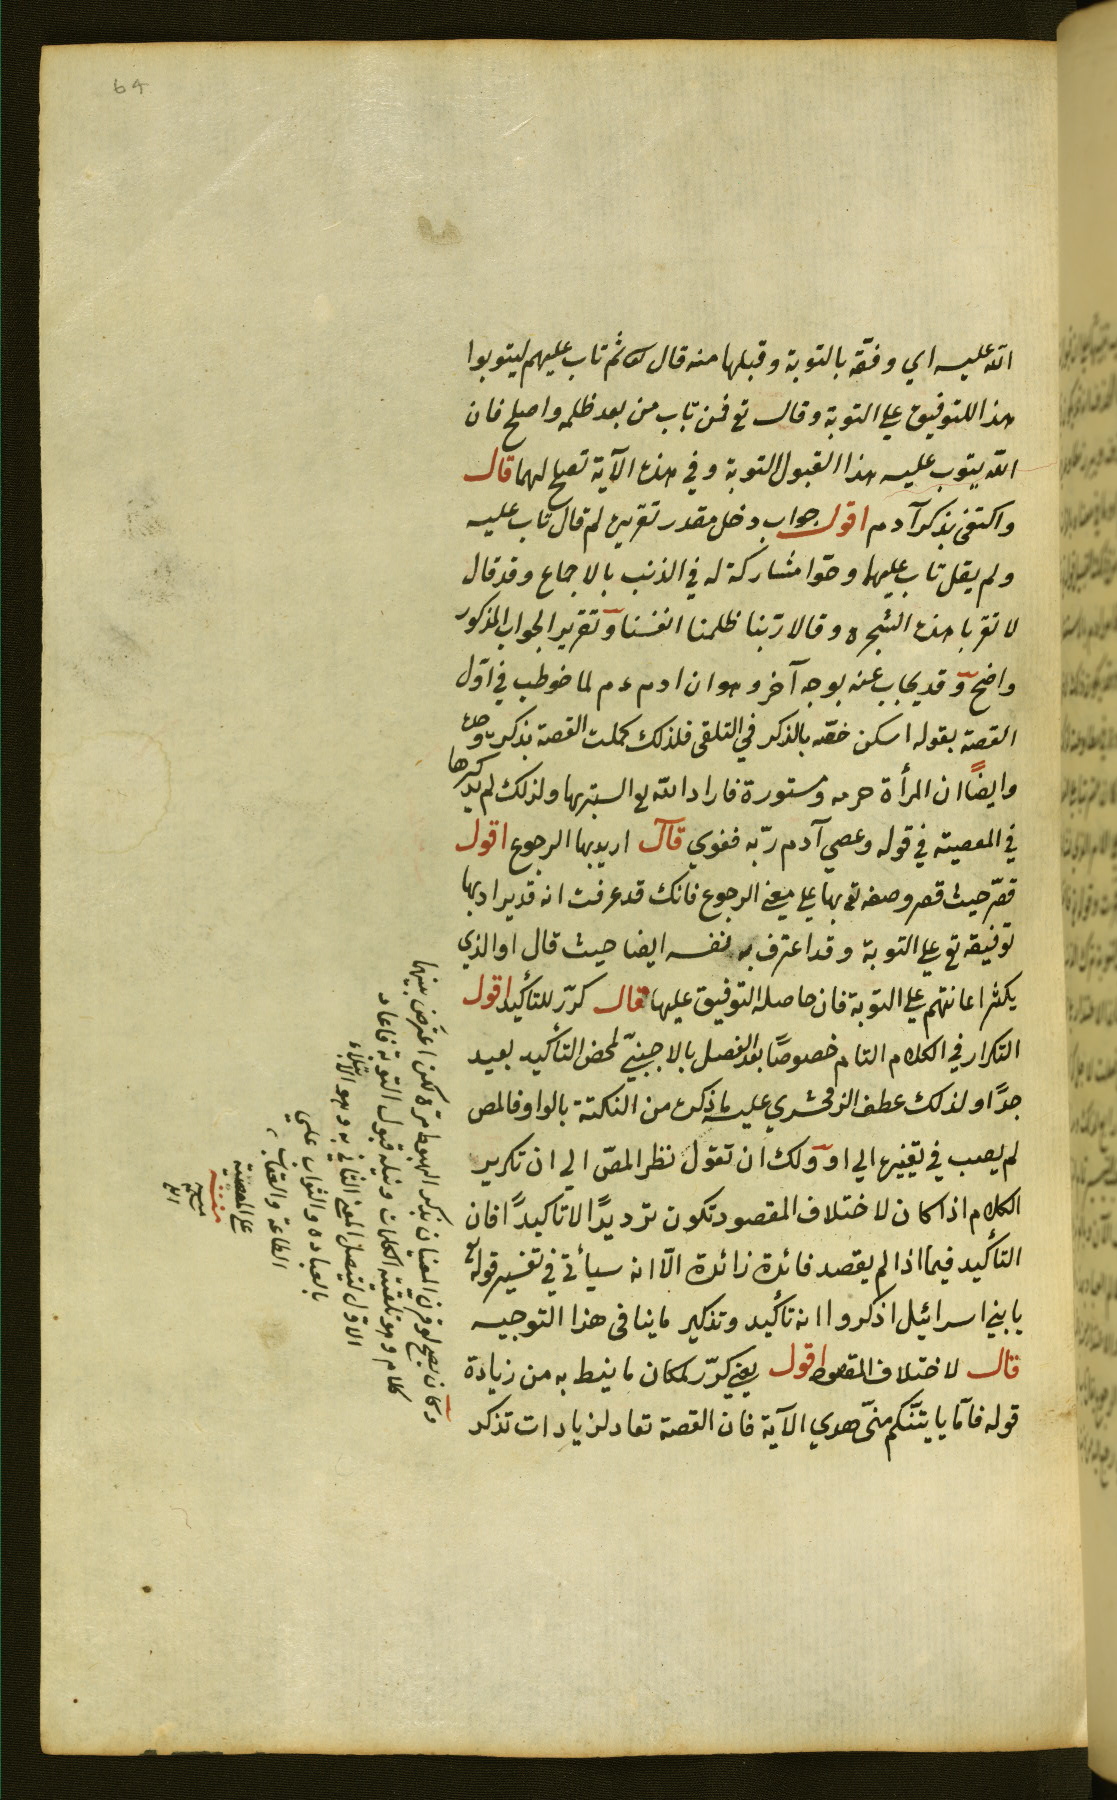 64
الله عليه اي وفّقه بالتوبة وقبلها منه قال الله ثم تاب عليهم ليتوبوا
هذا للتوفيق علي التوبة وقال تع فمن تاب من بعد ظلمه واصلح فان
الله يتوب عليه هذا القبول التوبة وفي هذه الآية تصلح لهما قال
واكتفي بذكر آدم اقول جواب دخل مقدر تقريره لم قال تاب عليه
ولم يقل تاب عليهما وحوّا مشاركة له في الذنب بالاجماع وقد قال
لا تقربا هذه الشجرة وقالا ربّنا ظلمنا انفسنا وتقرير الجواب المذكور
واضح وقد يجاب عنه بوجه آخر وهو ان ادم ءم لما خوطب في اوّل
القصة بقوله اسكن خصّه بالذكر في التلقي فلذلك كملت القصة بذكره وحده
وايضًا ان المرأة حرمه ومستورة فاراد الله تع الستر بها ولذلك لم يذكرها
في المعصية في قوله وعصي آدم ربّه فغوي قال اريد بها الرجوع اقول
قصّر حيث قصر وصفه تع بها علي معني الرجوع فانك قد عرفت انه قد يراد بها
توفيقه تع علي التوبة وقد اعترف به نفسه ايضا حيث قال او الذي
يكثر اعانتهم علي التوبة فان حاصله التوفيق عليها قال كرّر للتأكيد اقول
التكرار في الكلام التام خصوصًا بعد الفصل بالاجنبيّ لمحض التأكيد بعيد
جدًّا ولذلك عطف الزمخشري عليه ما ذكره من النكتة بالواو فالمص
لم يصب في تغييرها الي او ولك ان تقول نظر المصّ الي ان تكرير
الكلام اذا كان لاختلاف المقصود تكون ترديدًا لا تاكيدًا فان
التأكيد فيما اذا لم يقصد فائدة زائدة الّا انه سيأتي في تفسير قوله تع
يا بني اسرائيل اذكروا انه تأكيد وتذكير ما ينافي هذا التوجيه
قال لاختلاف المقصود اقول يعني كرّر لمكان ما نيط به من زيادة
قوله فامّا يأتينّكم منّي هدي الآية فان القصة تعاد لزيادات تذكر
وكان يصح لو قرن المعنيان بذكر الهبوط مرة لكن اعترض بينهما
كلام وهو تلقيه الكلمات ونيله قبول التوبة فاعاد
الاول ليتصل المعني الثاني به وهو الابتلاء
بالعبادة والثواب علي
الطاعة والعقاب
علي المعصية